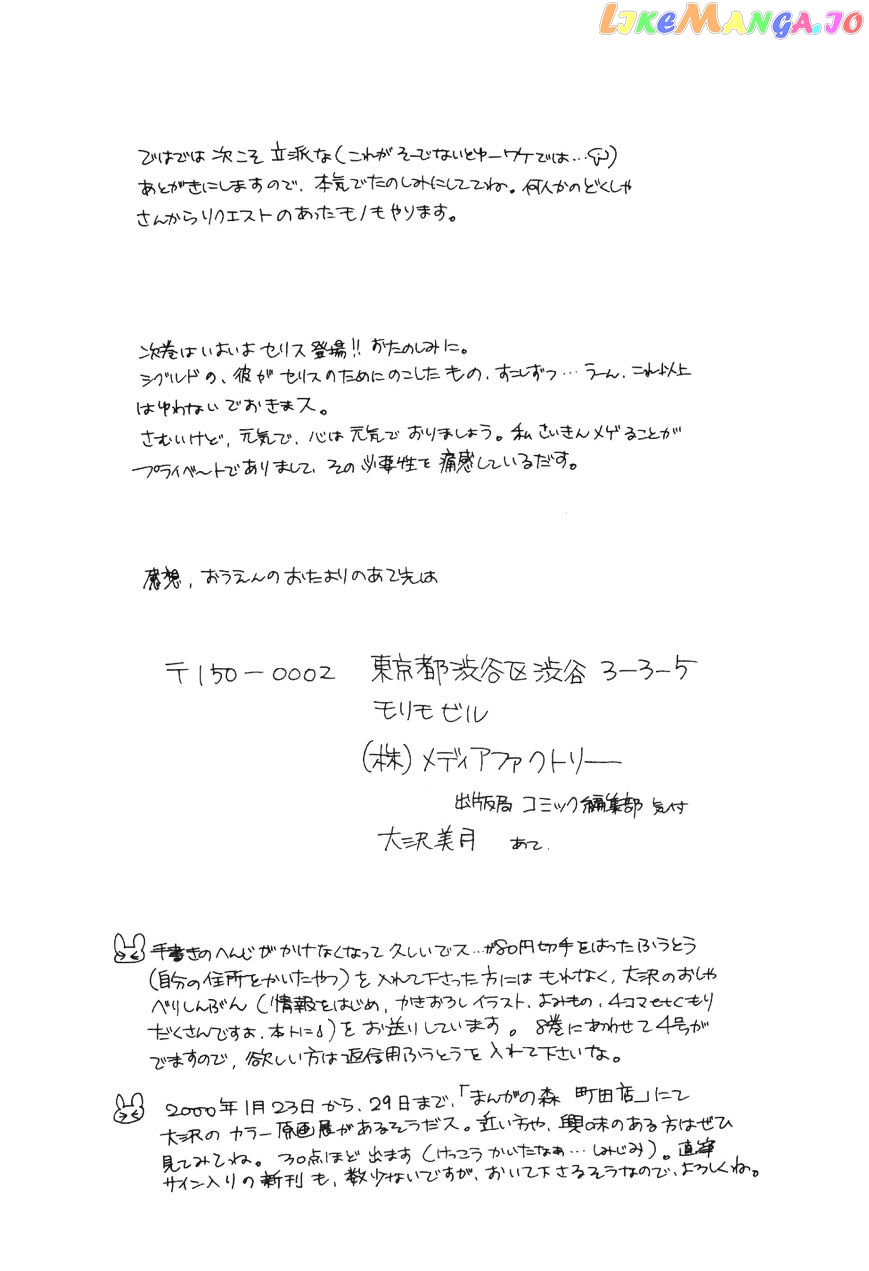 LIKEMANGA.IO
ではでは 次こそ 立派な(これが そーでないとゆーワケでは…)
あとがきにしますので、本気でたのしみにしててね。何人かのどくしゃ
さんからリクエストのあったモノもやります。
次巻はいよいよ セリス 登場!! おたのしみに。
シグルドの、彼が セリスのためにのこした もの、すこしずつ…うーん、これ以上
はゆわない でおきまス。
さむいけど、元気で、心は 元気で おりましょう。私 さいきん メゲることが
プライベートでありまして、その必要性を 痛感しているだす。
感想、おうえんの おたよりのあて先は
〒150-0002 東京都渋谷区渋谷 3-3-5
モリモビル
(株)メディアファクトリー
出版局 コミック編集部 気付
大沢美月 あて.
手書きのへんじが かけなくなって 久しいでス…が80円切手をはった ふうとう
(自分の住所をかいたやつ)を 入れて下さった 方には もれなく、大沢のおしゃ
べりしんぶん (情報をはじめ、かきおろしイラスト、よみもの、4コマetcもり
だくさんですよ、本トに)を お送りしています。8巻にあわせて 4号が
でますので、欲しい方は 返信用ふうとうを 入れて下さいな。
2000年1月23日から、29日まで、「まんがの森 町田店」にて
大沢の カラー 原画展があるそうだス。近い方や、興味のある方はぜひ
見てみてね。30点ほど 出ます (けっこう かいたなぁ…しみじみ)。直筆
サイン入りの 新刊も、数少ないですが、おいて下さるそうなので、よろしくね。